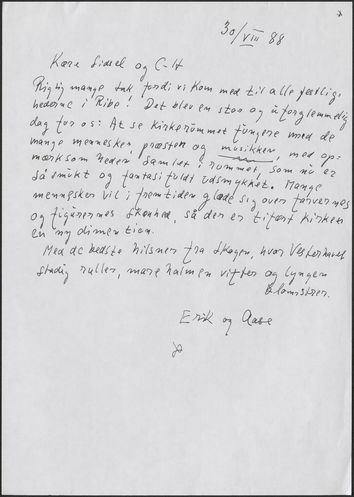 30/VIII 88
Kære Sidsel og C-H
Rigtig mange tak fordi vi kom med til alle festlig-
hederne i Ribe! Det blev en stor og uforglemmelig
dag for os: At se kirkerummet fungere med de
mange mennesker, præsten og musikken, med op-
mærksomheden samlet i rummet, som nu er
så smukt og fantasifuldt udsmykket. Mange
mennesker vil i fremtiden glæde sig over farvernes
og figurernes skønhed, så der er tilført kirken
en ny dimension.
Med de bedste hilsner fra Skagen, hvor Vesterhavet
stadig ruller, marehalmen vifter og lyngen
blomstrer.
Erik og Aase